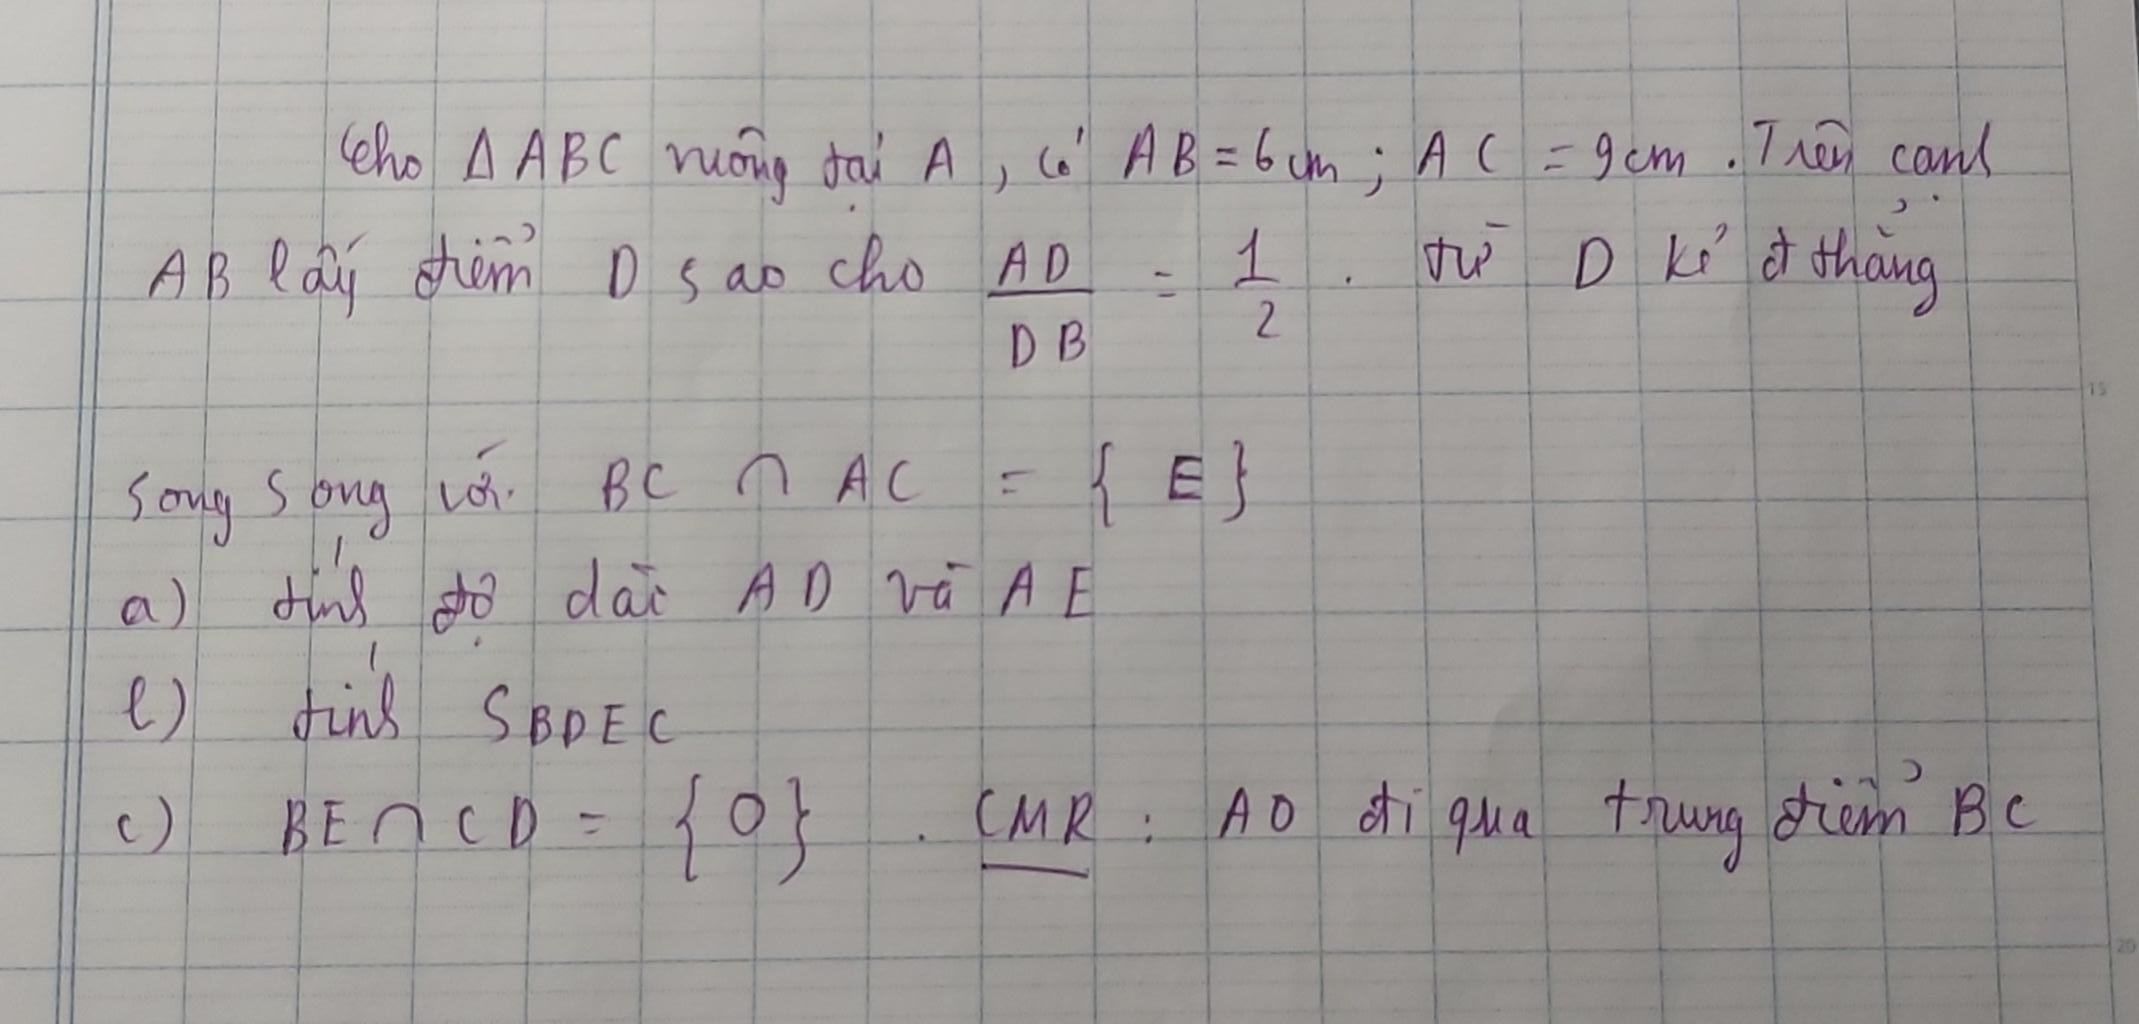 Cho Δ ABC vuông tại A, có AB = 6 cm; AC = 9 cm. Trên cạnh
AB lấy điểm D sao cho AD/DB = 1/2. từ D kẻ đ thẳng
song song với BC ∩ AC = { E }
a) tính độ dài AD và AE
b) tính S BDEC
c) BE ∩ CD = { O }. CMR: AO đi qua trung điểm BC
15
20